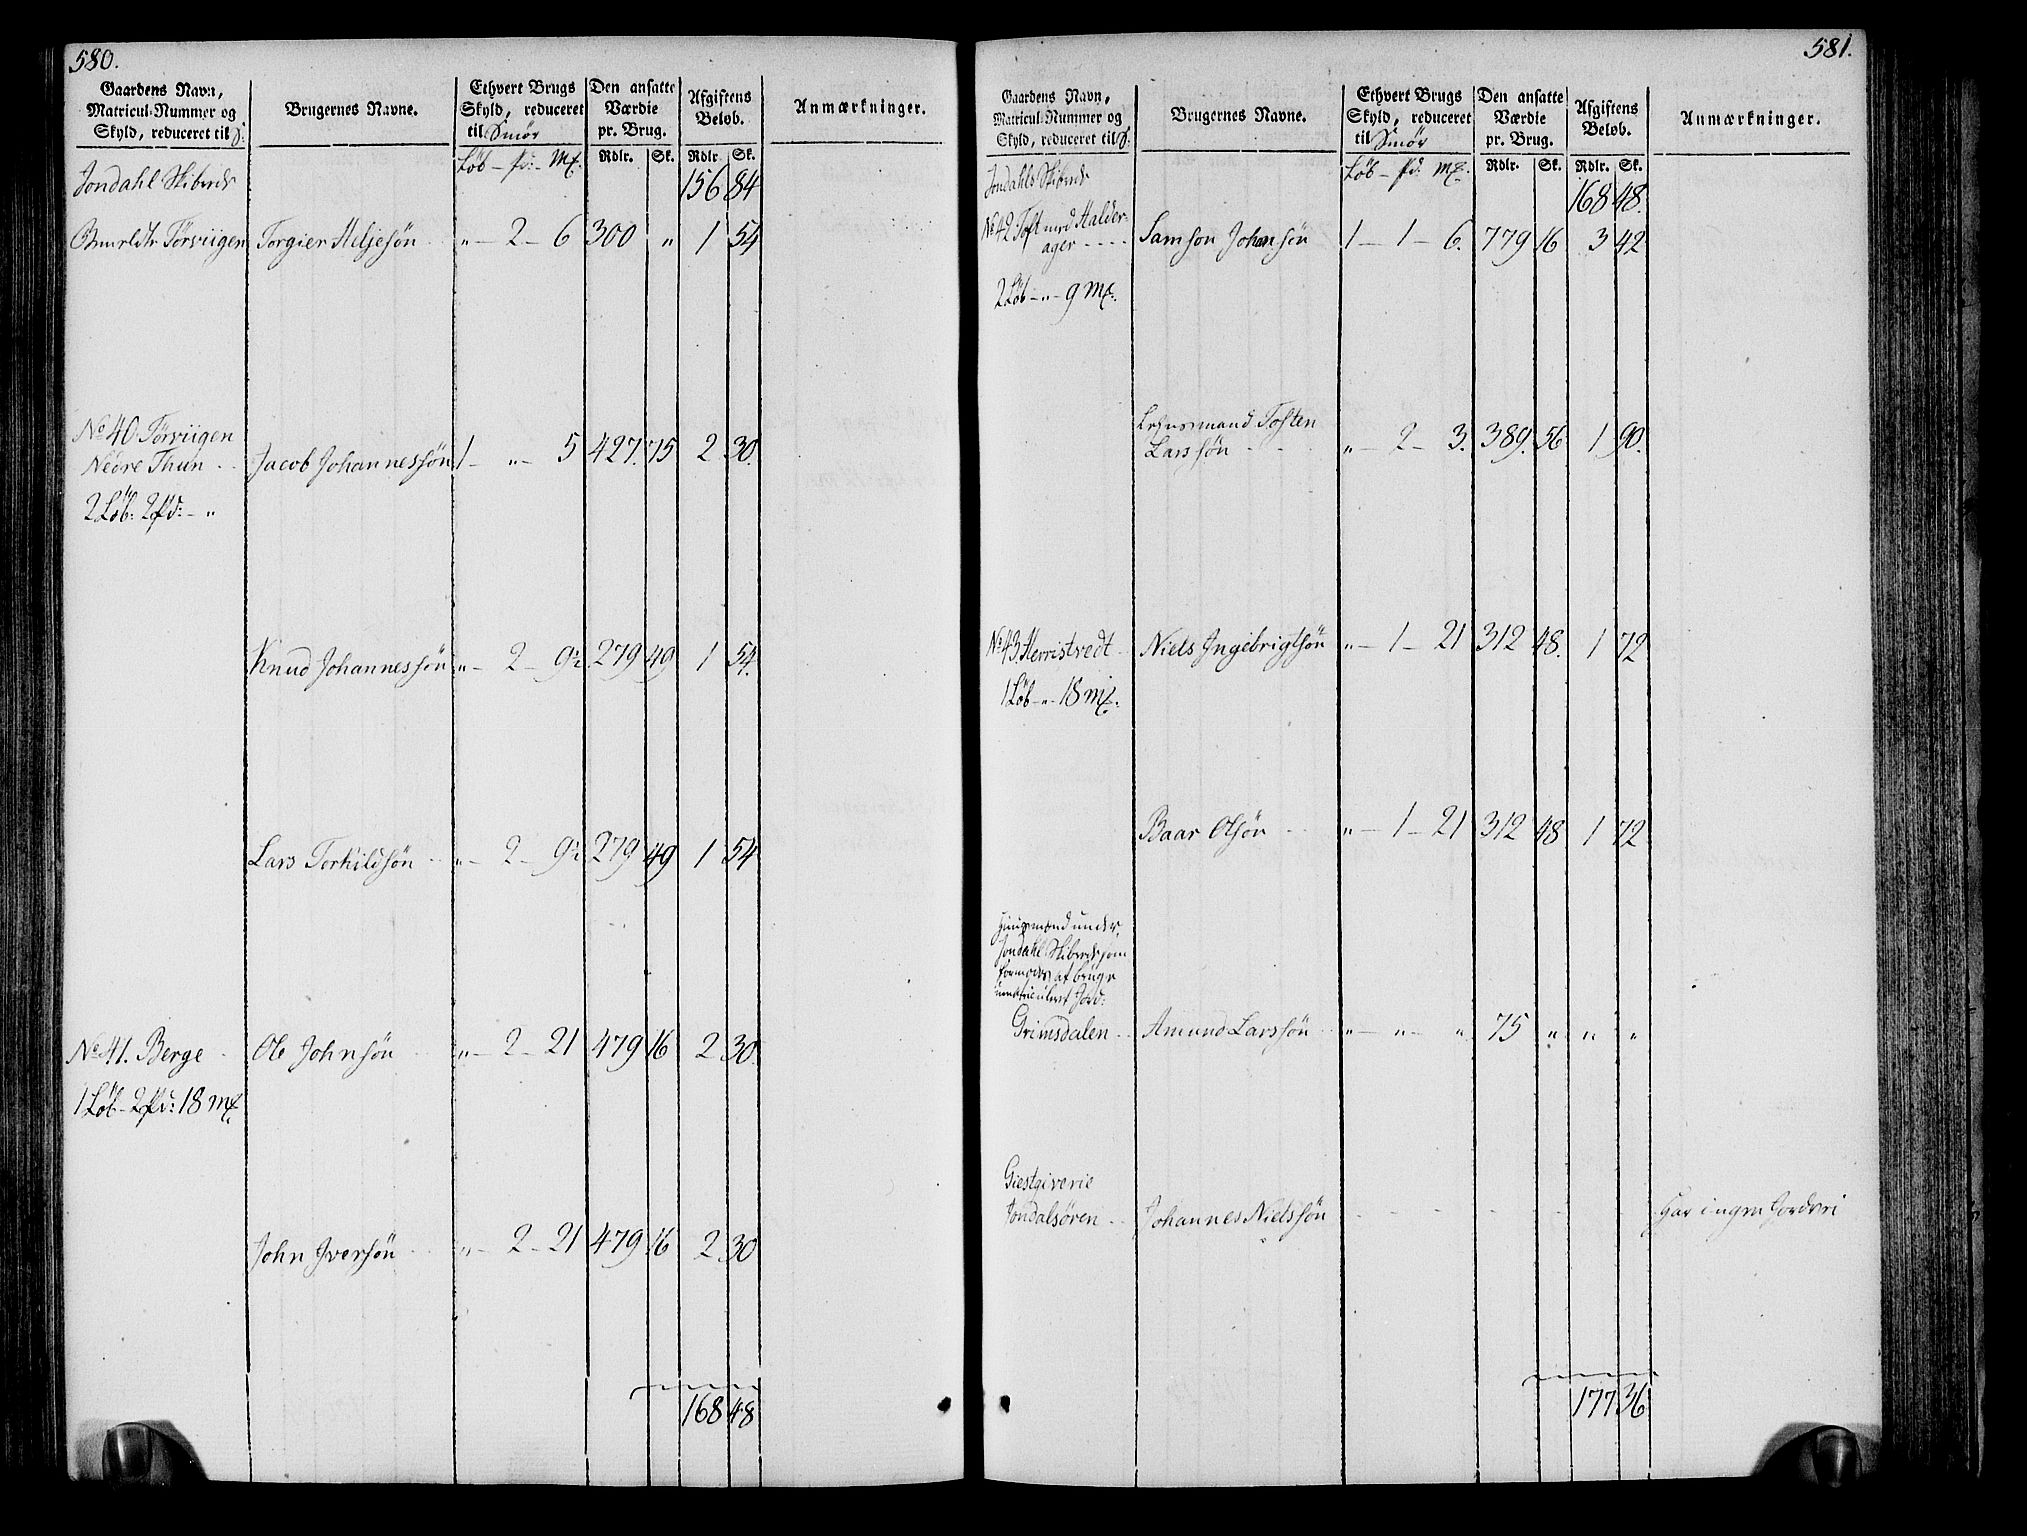 580.
Gaardens Navn, Matricul-Nummer og Skyld, reduceret til
Brugernes Navne.
Ethvert Brugs Skyld, reduceret til Smør
Den ansatte Værdie pr. Brug.
Afgiftens Beløb.
Anmærkninger.
Løb - pd: - Mk:
Rdlr. Sk. Rdlr Sk.
Jondahl Skibreds 156 84
Tørviigen Torgier Heljesøn „ - 2 - 6 300 „ 1 54
No 40 Tørviigen
Nedre Thun Jacob Johannessøn 1 - „ - 5 427. 75 2 30.
2 Løb: 2 pd: - „
Knud Johannessøn „ - 2 - 9½ 279 49 1 54.
Lars Torkildsøn „ - 2 - 9½ 279 49 1 54
No 41. Berge Ole Johnsøn „ - 2 - 21 479 16 2 30.
1 Løb - 2 pd: 18 Mk
John Iversøn „ - 2 - 21 479 16 2 30
168 48
581.
Gaardens Navn, Matricul-Nummer og Skyld, reduceret til
Brugernes Navne.
Ethvert Brugs Skyld, reduceret til Smør
Den ansatte Værdie pr. Brug.
Afgiftens Beløb.
Anmærkninger.
Løb - pd: Mk.
Rdlr. Sk. Rdlr. Sk.
Jondahls Skibreds 168 48.
No 42 Toft med Halder-
ager - - - - Samson Johansøn 1 - 1 - 6. 779 16 3 42
2 Løb - „ - 9 Mk.
Lehnsmand Tosten
Larssøn „ - 2 - 3. 389. 56 1 90.
No 43 Herristvedt Niels Ingebrigtsøn „ - 1 - 21 312 48. 1 72
1 Løb - „ - 18 Mk.
Baar Olsøn „ - 1 - 21 312 48 1 72
Huusmænd under
Jondahl Skibreds som
formodes at bruge
umatriculeret Jord:
Grimsdalen Amund Larssøn „ - „ - „ 75 „ „ „
Giestgiverie
Jondalsøren Johannes Nielssøn - - - - - Har ingen Jordvei
177 36